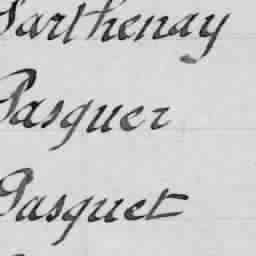 Parthenay
Pasquer
Pasquet